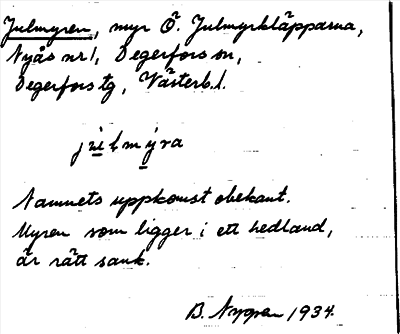 Julmyren, myr Ö. Julmyrkläpparna,
Nyås nr 1, Degerfors sn,
Degerfors tg, Västerb. l.
Namnets uppkomst obekant.
Myren som ligger i ett hedland,
är rätt sank.
B. Nygren 1934.